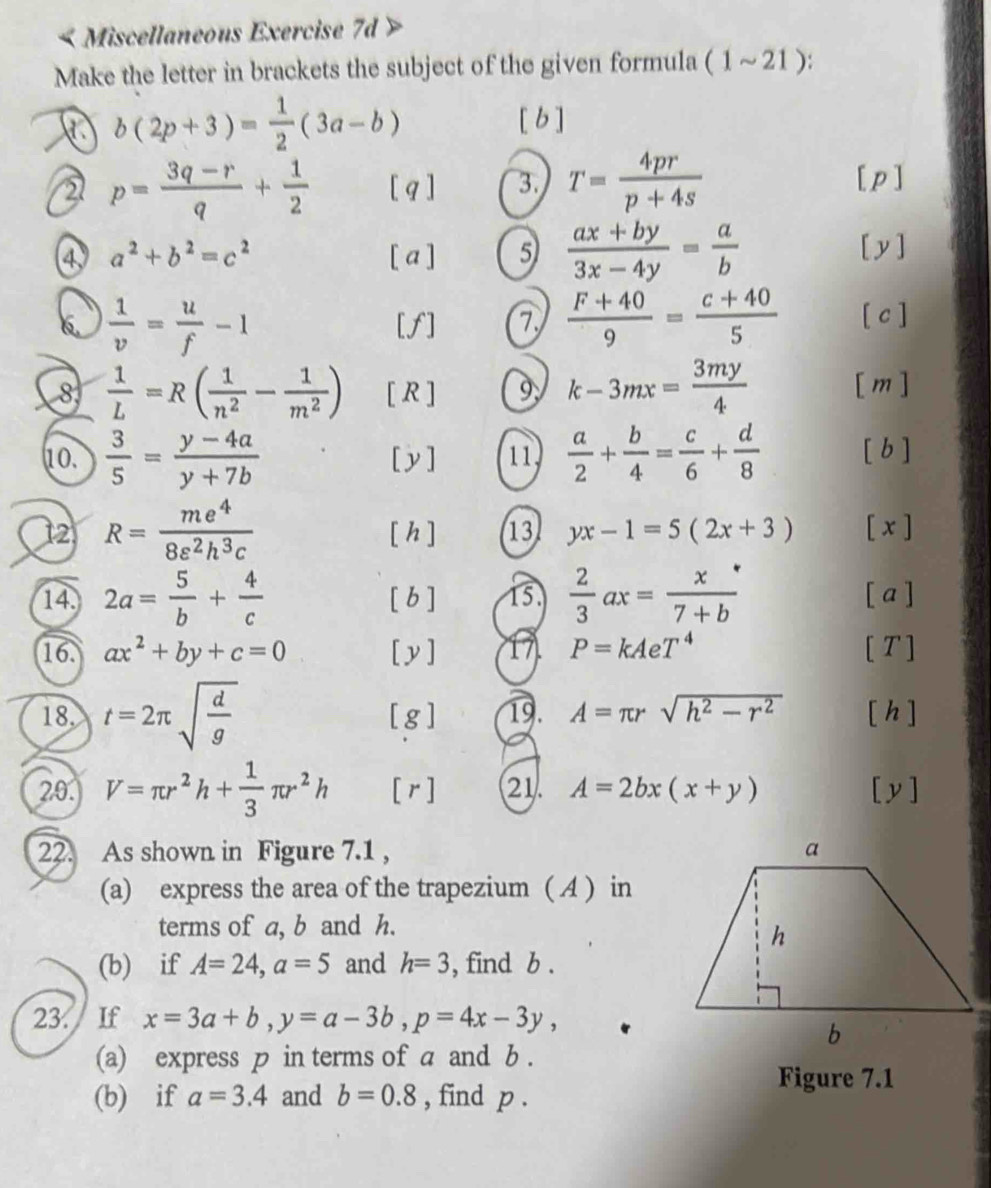 < Miscellaneous Exercise 7d >
Make the letter in brackets the subject of the given formula ( 1 ~ 21 ):
1. b ( 2p + 3 ) = 1/2 ( 3a − b ) [ b ]
2. p = (3q − r)/q + 1/2 [ q ] 3. T = 4pr/(p + 4s) [ p ]
4. a² + b² = c² [ a ] 5. (ax + by)/(3x − 4y) = a/b [ y ]
6. 1/v = u/f − 1 [ f ] 7. (F + 40)/9 = (c + 40)/5 [ c ]
8. 1/L = R ( 1/n² − 1/m² ) [ R ] 9. k − 3mx = 3my/4 [ m ]
10. 3/5 = (y − 4a)/(y + 7b) [ y ] 11. a/2 + b/4 = c/6 + d/8 [ b ]
12. R = me⁴/(8ε²h³c) [ h ] 13. yx − 1 = 5 ( 2x + 3 ) [ x ]
14. 2a = 5/b + 4/c [ b ] 15. 2/3 ax = x/(7 + b) [ a ]
16. ax² + by + c = 0 [ y ] 17. P = kAeT⁴ [ T ]
18. t = 2π √(d/g) [ g ] 19. A = πr √(h² − r²) [ h ]
20. V = πr²h + 1/3 πr²h [ r ] 21. A = 2bx ( x + y ) [ y ]
22. As shown in Figure 7.1 ,
(a) express the area of the trapezium ( A ) in
terms of a, b and h.
(b) if A = 24, a = 5 and h = 3, find b .
23. If x = 3a + b , y = a − 3b , p = 4x − 3y ,
(a) express p in terms of a and b .
(b) if a = 3.4 and b = 0.8 , find p .
a
h
b
Figure 7.1